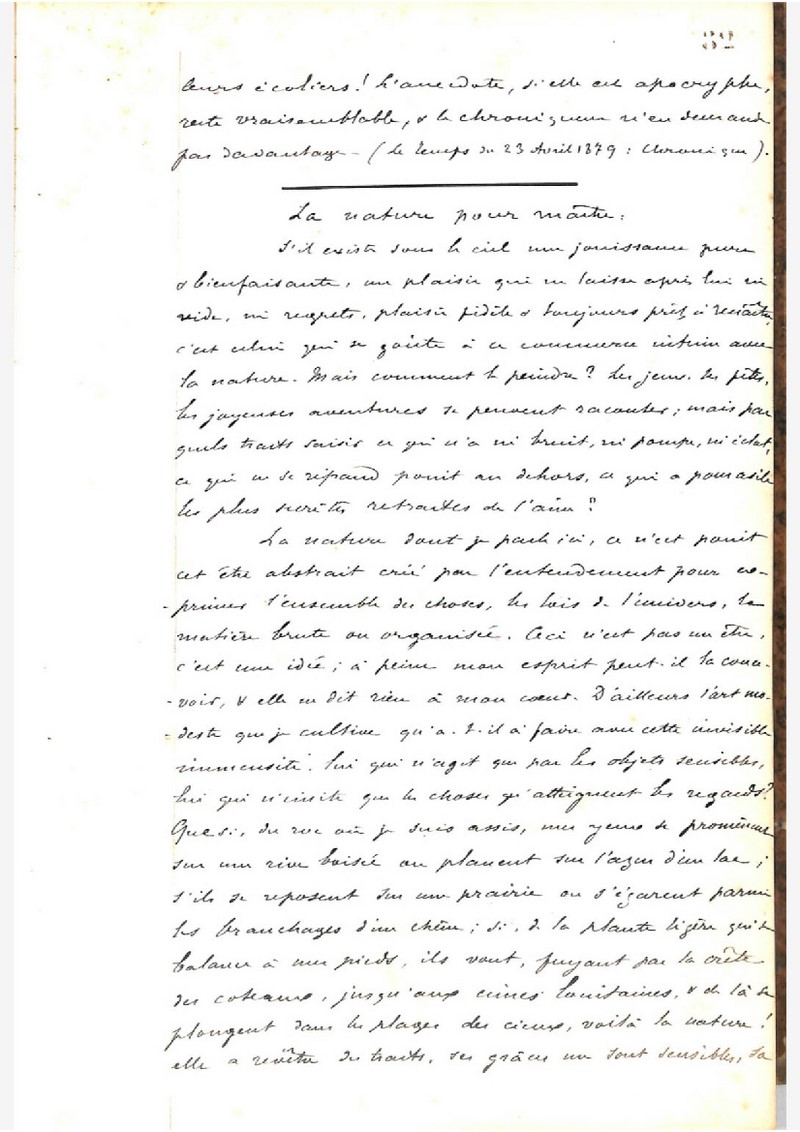 leurs écoliers! L'anecdote, si elle est apocryphe,
reste vraisemblable, & le chroniqueur n'en demande
pas davantage - (le Temps du 23 Avril 1879 : Chronique).
La nature pour maître :
S'il existe sous le ciel une jouissance pure
& bienfaisante, un plaisir qui ne laisse après lui ni
vide, ni regrets, plaisir fidèle & toujours prêt à renaître,
c'est celui qui se goûte à ce commerce intime avec
la nature. Mais comment le peindre? Les jeux, les fêtes,
les joyeuses aventures se peuvent raconter; mais par
quels traits saisir ce qui n'a ni bruit, ni pompe, ni éclat,
ce qui ne se répand point au dehors, ce qui a pour asile
les plus secrètes retraites de l'âme?
La nature dont je parle ici, ce n'est point
cet être abstrait créé par l'entendement pour ex-
-primer l'ensemble des choses, les lois de l'univers, la
matière brute ou organisée. Ceci n'est pas un être,
c'est une idée; à peine mon esprit peut-il la conce-
-voir, & elle ne dit rien à mon cœur. D'ailleurs l'art mo-
-deste que je cultive qu'a-t-il à faire avec cette invisible
immensité, lui qui n'agit que par les objets sensibles,
lui qui n'imite que les choses qu'atteignent les regards?
Que si, du roc où je suis assis, mes yeux se promènent
sur une rive boisée ou planent sur l'azur d'un lac;
s'ils se reposent sur une prairie ou s'égarent parmi
les branchages d'un chêne; si, de la plante légère qui se
balance à mes pieds, ils vont, fuyant par la crête
des coteaux, jusqu'aux cimes lointaines, & de là se
plongent dans les plages des cieux, voilà la nature!
elle a revêtu des traits, ses grâces me sont sensibles, sa